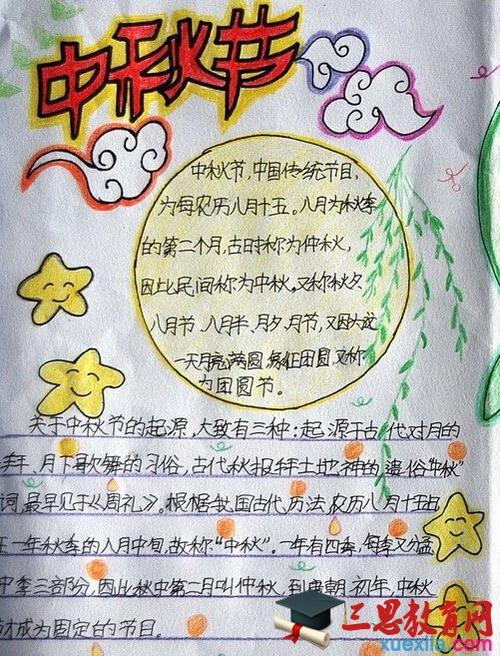 中秋节
中秋节,中国传统节日,
为每农历八月十五。八月为秋季
的第二个月,古时称为仲秋,
因此民间称为中秋。又称秋夕
八月节、八月半、月夕、月节,又因为这
一天月亮满圆,象征团圆,又称
为团圆节。
关于中秋节的起源,大致有三种:起源于古代对月的
崇拜、月下歌舞的习俗,古代秋报拜土地神的遗俗“中秋”
词,最早见于《周礼》。根据我国古代历法,农历八月十五日
在一年秋季的八月中旬,故称“中秋”。一年有四季,每季又分孟
中季三部分,因此秋中第二月叫仲秋,到唐朝初年,中秋
才成为固定的节目。
三思教育网
xuexila.com